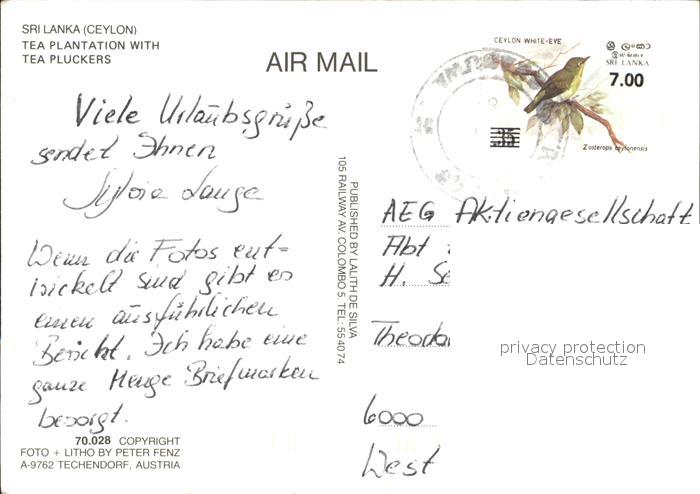 SRI LANKA (CEYLON)
TEA PLANTATION WITH
TEA PLUCKERS
AIR MAIL
CEYLON WHITE-EYE
ශ්‍රී ලංකා
SRI LANKA
7.00
35
Zosterops ceylonensis
Viele Urlaubsgrüße
sendet Ihnen
Sylvia Lange
Wenn die Fotos ent-
wickelt sind gibt es
einen ausführlichen
Bericht. Ich habe eine
ganze Menge Briefmarken
besorgt.
70.028 COPYRIGHT
FOTO + LITHO BY PETER FENZ
A-9762 TECHENDORF, AUSTRIA
PUBLISHED BY LALITH DE SILVA
105 RAILWAY AV. COLOMBO 5. TEL: 554074
AEG Aktiengesellschaft
Abt
H. Se
Theodor
privacy protection
Datenschutz
6000
West